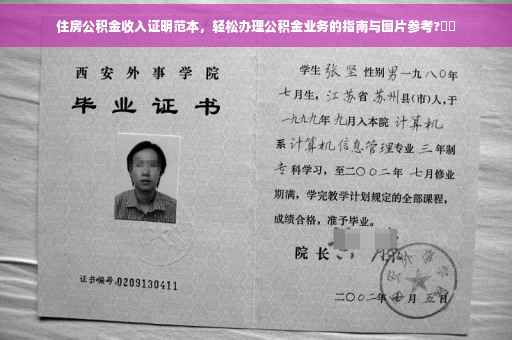 住房公积金收入证明范本，轻松办理公积金业务的指南与图片参考?
西安外事学院
毕业证书
证书编号:0209130411
学生 张坚 性别 男 一九八〇年
七月生，江苏省 苏州县(市)人，于
一九九九年 九月入本院 计算机
系 计算机信息管理专业 三 年制
专 科学习，至二〇〇二年 七月修业
期满，学完教学计划规定的全部课程，
成绩合格，准予毕业。
院长
二〇〇二年 七 月 五 日